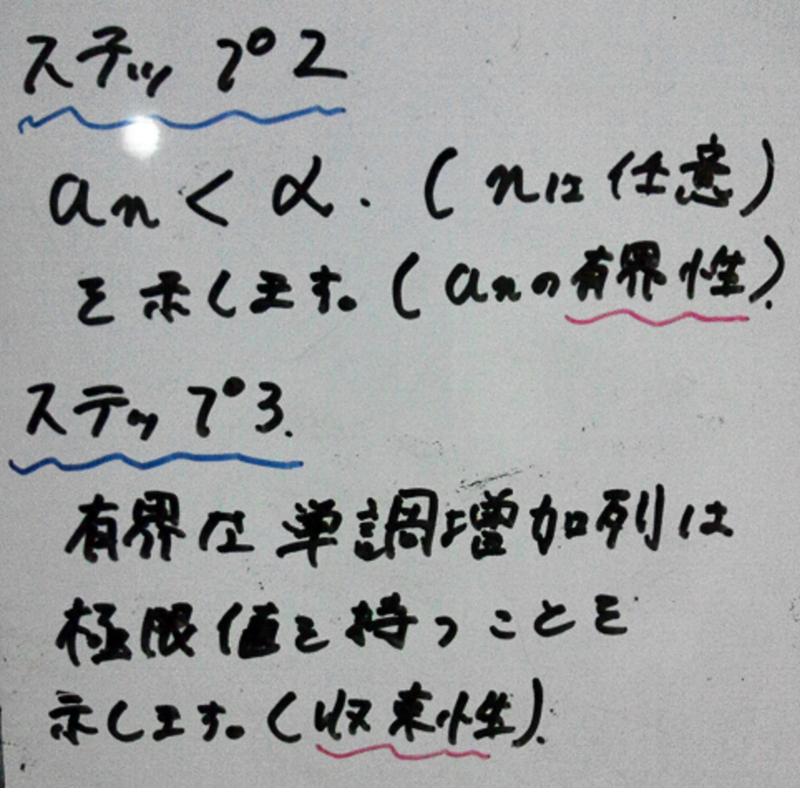 ステップ2
an < α. (nは任意)
を示します。(anの有界性).
ステップ3.
有界な単調増加列は
極限値を持つことを
示します。(収束性).